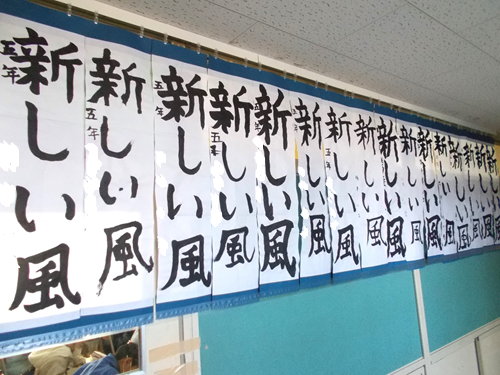 新しい風
五年
新しい風
五年
新しい風
五年
新しい風
五年
新しい風
新しい風
新しい風
五年
新しい風
新しい風
新しい風
新しい風
新しい風
新しい風
新しい風
新しい風
新しい風